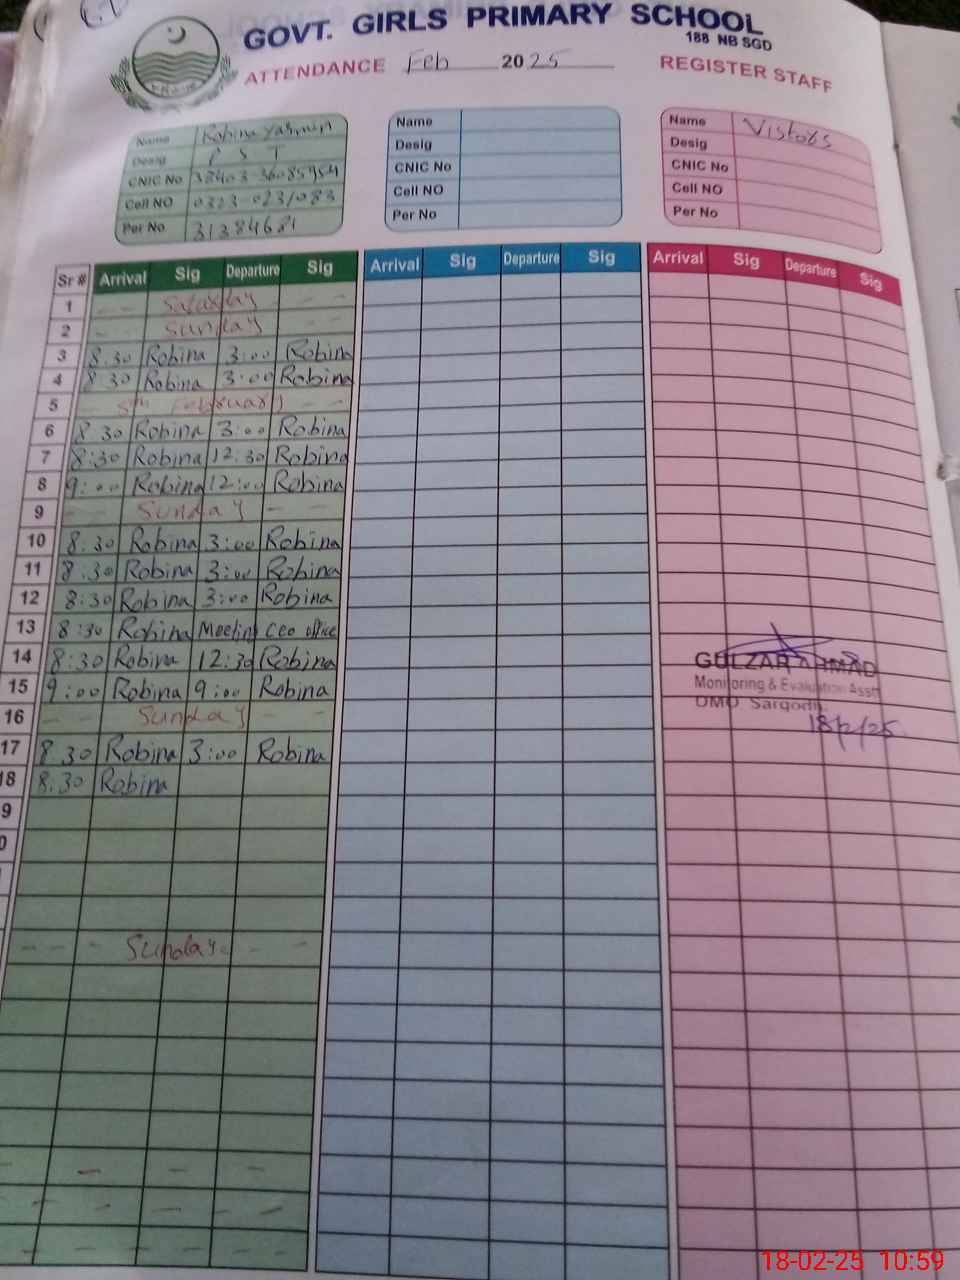 GOVT. GIRLS PRIMARY SCHOOL
188 NB SGD
ATTENDANCE Feb 2025 REGISTER STAFF
Name Robina Yasmin
Desig P S T
CNIC No
Cell NO 0323-0231083
Per No 31384681
Name
Desig
CNIC No
Cell NO
Per No
Name Vistors
Desig
CNIC No
Cell NO
Per No
Sr # Arrival Sig Departure Sig Arrival Sig Departure Sig Arrival Sig Departure Sig
1 - - Saturday - -
2 - Sunday - -
3 8.30 Robina 3:00 Robina
4 8.30 Robina 3:00 Robina
5 - 5th February - -
6 8.30 Robina 3:00 Robina
7 8:30 Robina 12.30 Robina
8 9:00 Robina 12:00 Robina
9 - - Sunday - -
10 8.30 Robina 3:00 Robina
11 8.30 Robina 3:00 Robina
12 8:30 Robina 3:00 Robina
13 8:30 Robina Meeting CEO office
14 8:30 Robina 12:30 Robina
15 9:00 Robina 9:00 Robina
16 - - Sunday - -
17 8.30 Robina 3:00 Robina
18 8.30 Robina
9
0
- - - Sunday - -
GULZAR AHMAD
Monitoring & Evaluation Asstt
DMO Sargodha
18/2/25
18-02-25 10:59